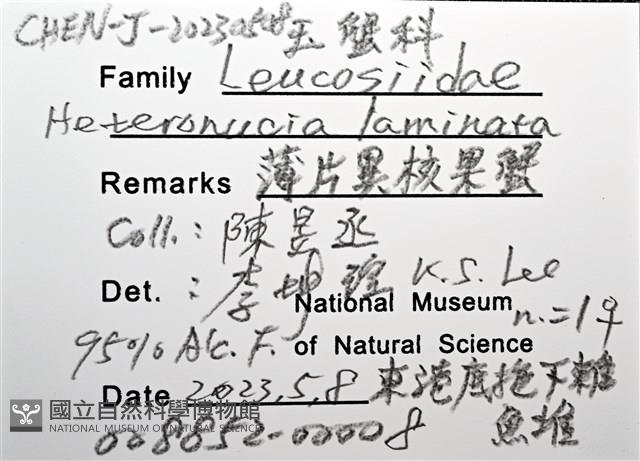 CHEN-J-20230508 玉蟹科
Family Leucosiidae
Heteronucia laminata
Remarks 薄片異核果蟹
Coll.: 陳昱丞
Det.: 李坤瑄 K.S. Lee
National Museum n.=1♀
95% Alc. F. of Natural Science
Date 2023.5.8 東港底拖下雜
魚堆
國立自然科學博物館
NATIONAL MUSEUM OF NATURAL SCIENCE
008052-00008